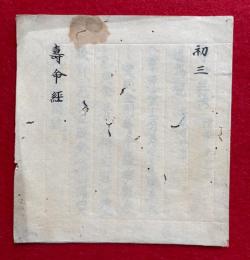 初三
壽命經